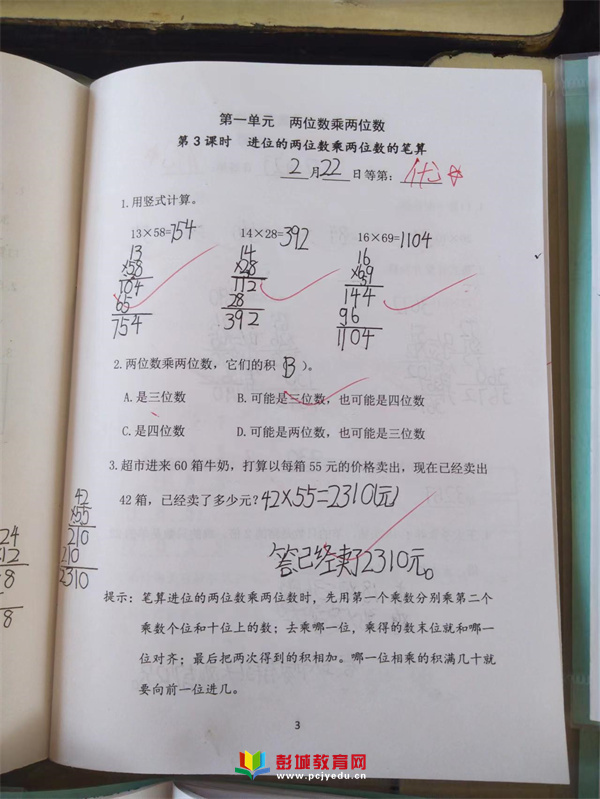 第一单元 两位数乘两位数
第3课时 进位的两位数乘两位数的笔算
2月22日等第：优
1.用竖式计算。
13×58=754 14×28=392 16×69=1104
13 14 16
×58 ×28 ×69
104 112 144
65 28 96
754 392 1104
2.两位数乘两位数，它们的积（B）。
A.是三位数 B.可能是三位数，也可能是四位数
C.是四位数 D.可能是两位数，也可能是三位数
3.超市进来60箱牛奶，打算以每箱55元的价格卖出，现在已经卖出
42箱，已经卖了多少元？42×55=2310(元)
42
×55
210
210
2310
答已经卖了2310元。
提示：笔算进位的两位数乘两位数时，先用第一个乘数分别乘第二个
乘数个位和十位上的数；去乘哪一位，乘得的数末位就和哪一
位对齐；最后把两次得到的积相加。哪一位相乘的积满几十就
要向前一位进几。
3
24
12
8
8
彭城教育网
www.pcjyedu.cn